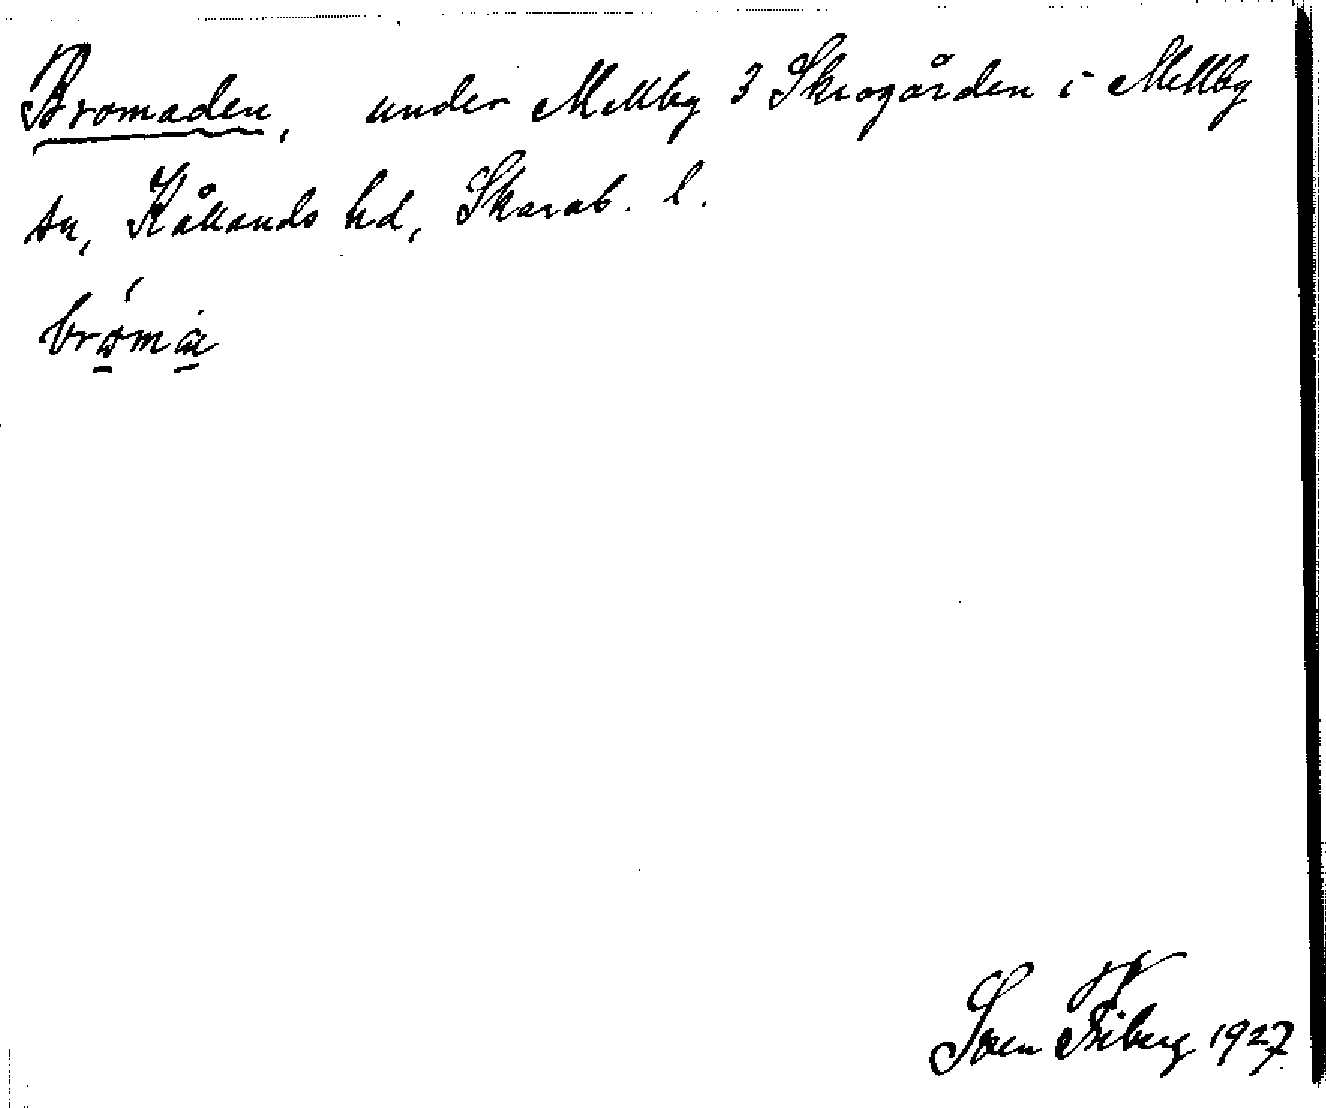 Bromaden, under Mellby 3 Skrogården i Mellby
sn, Kållands hd, Skarab. l.
Sven Fiberg 1927